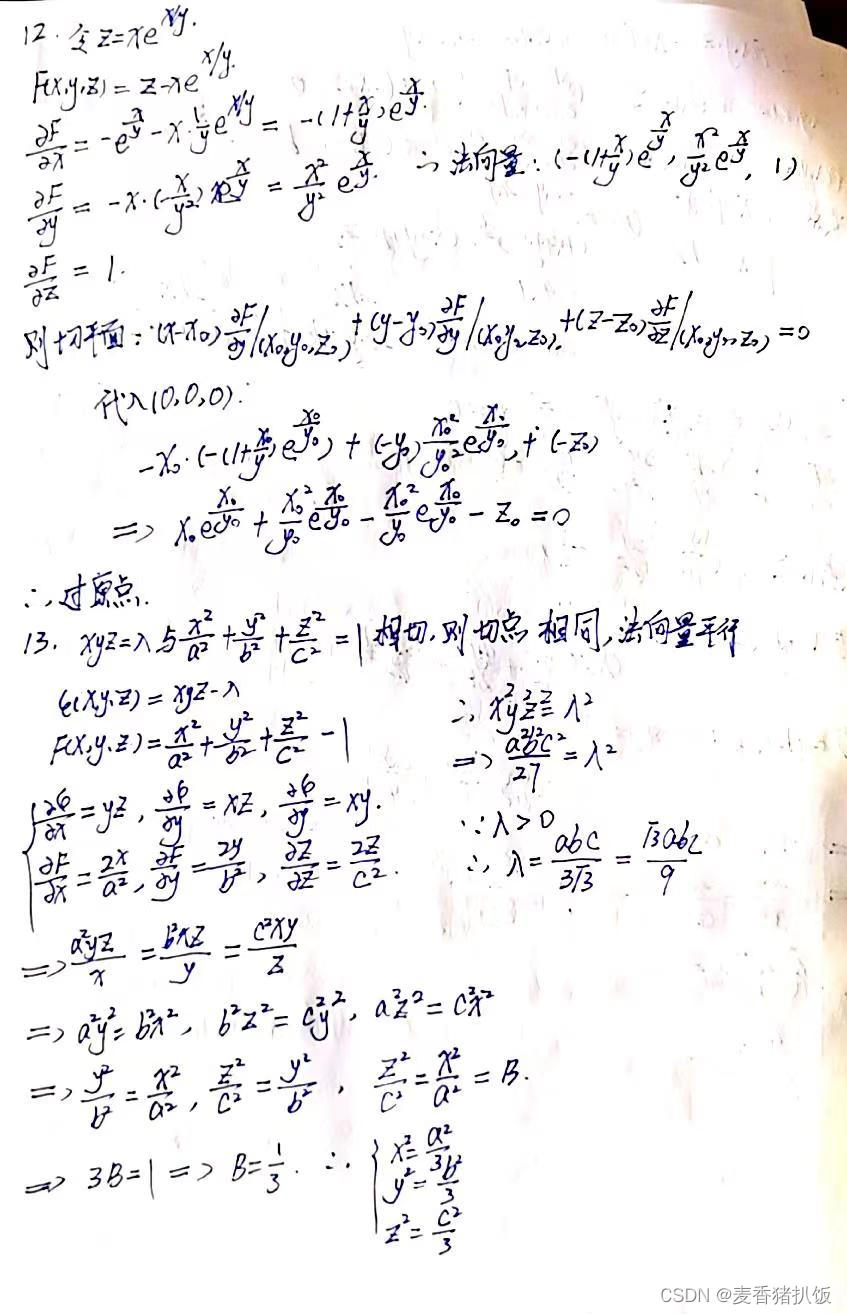 12. 令z=xe^{x/y}.
F(x,y,z) = z-xe^{x/y}.
∂F/∂x = -e^{x/y} - x·1/y e^{x/y} = -(1+x/y)e^{x/y}.
∂F/∂y = -x·(-x/y²) e^{x/y} = x²/y² e^{x/y}. ∴法向量: (-(1+x/y)e^{x/y}, x²/y² e^{x/y}, 1)
∂F/∂z = 1.
则切平面: (x-x₀)∂F/∂y|(x₀,y₀,z₀) + (y-y₀)∂F/∂y|(x₀,y₀,z₀) + (z-z₀)∂F/∂z|(x₀,y₀,z₀) = 0
代入(0,0,0):
-x₀·(-(1+x₀/y)e^{x₀/y₀}) + (-y₀) x₀²/y₀² e^{x₀/y₀} + (-z₀)
=> x₀e^{x₀/y₀} + x₀²/y₀ e^{x₀/y₀} - x₀²/y₀ e^{x₀/y₀} - z₀ = 0
∴过原点.
13. xyz=λ与x²/a²+y²/b²+z²/c²=1相切,则切点相同,法向量平行
G(x,y,z) = xyz-λ
F(x,y,z) = x²/a²+y²/b²+z²/c² - 1
{∂G/∂x = yz, ∂G/∂y = xz, ∂G/∂y = xy.
∂F/∂x = 2x/a², ∂F/∂y = 2y/b², ∂Z/∂Z = 2z/c².
=> a²yz/x = b²xz/y = c²xy/z
=> a²y² = b²x², b²z² = c²y², a²z² = c²x²
=> y²/b² = x²/a², z²/c² = y²/b², z²/c² = x²/a² = B.
=> 3B = 1 => B = 1/3. ∴ { x² = a²/3
y² = b²/3
z² = c²/3
∴ x²y²z² = λ²
=> a²b²c²/27 = λ²
∵ λ>0
∴ λ = abc/3√3 = √3abc/9
CSDN @麦香猪扒饭